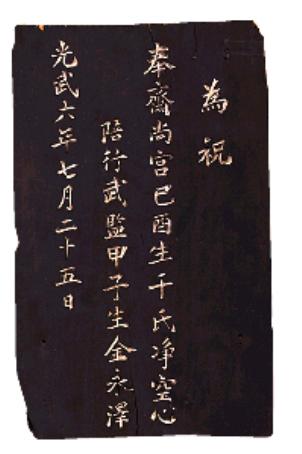 為祝
奉齋尚宮己酉生千氏净空心
陪行武監甲子生金永澤
光武六年七月二十五日